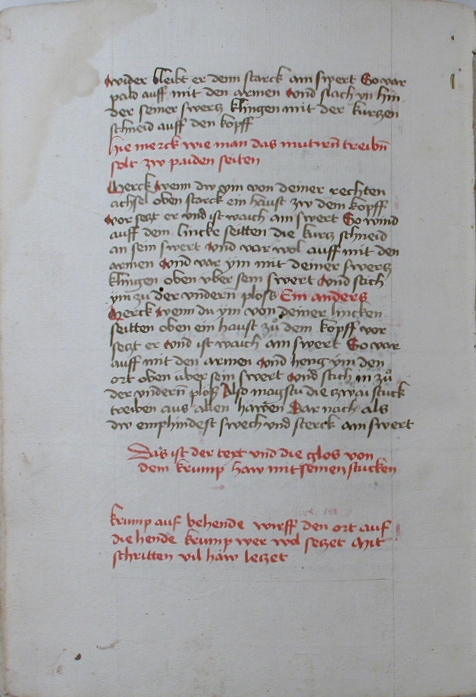 wider bleibt er denn starck am swert So var
pald auff mit den armen vnd slach yn hin
der seiner swertz klingen mit der kurtzen
schneid auff den kopff
hie merck wie man das mutirn treibn
solt zw paiden seiten
Merck wenn dw ym von deiner rechten
achsel oben starck ein haust zw dem kopff
vor setzt er vnd ist waich am swert So wind
auff dem lincke seitten die kurtz schneid
an sein swert vnd var wol auff mit den
armen vnd var ym mit deiner swertz
klingen oben vber sein swert vnd stich
ym zu der vndern plosß Ein anders
Merck wenn du ym von deiner lincken
seitten oben ein haust zů dem kopff vor
setzt er vnd ist waich am swert So var
auff mit den armen vnd heng ym den
ort oben über sein swert vnd stich in zů
der vndern plosß Also magstu die zwai stuck
treiben aus allen häwen Dar nach als
dw emphindest swech vnd sterck am swert
Das ist der text vnd die glos von
dem krump haw mit seinen stucken
krump auf behende wirff den ort auf
die hende krump wer wol setzet mit
schritten vil häw letzet